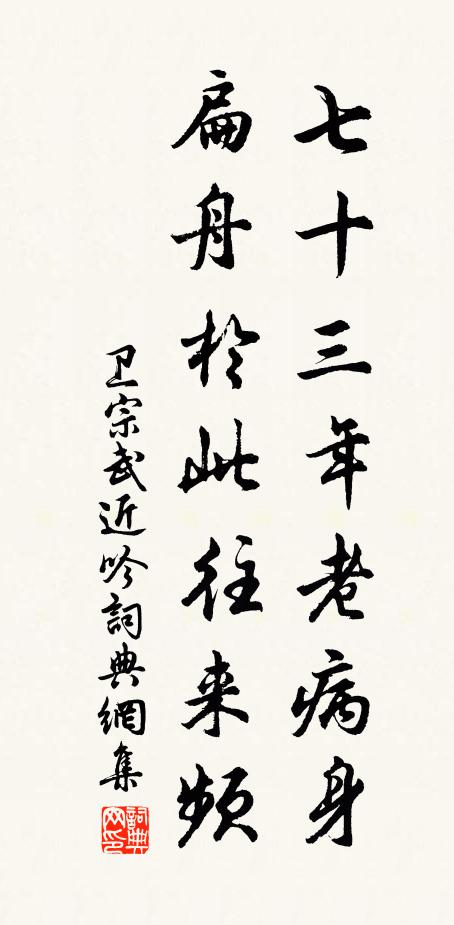 七十三年老病身
扁舟於此往来頻
卫宗武近吟詞典網集
詞典网印